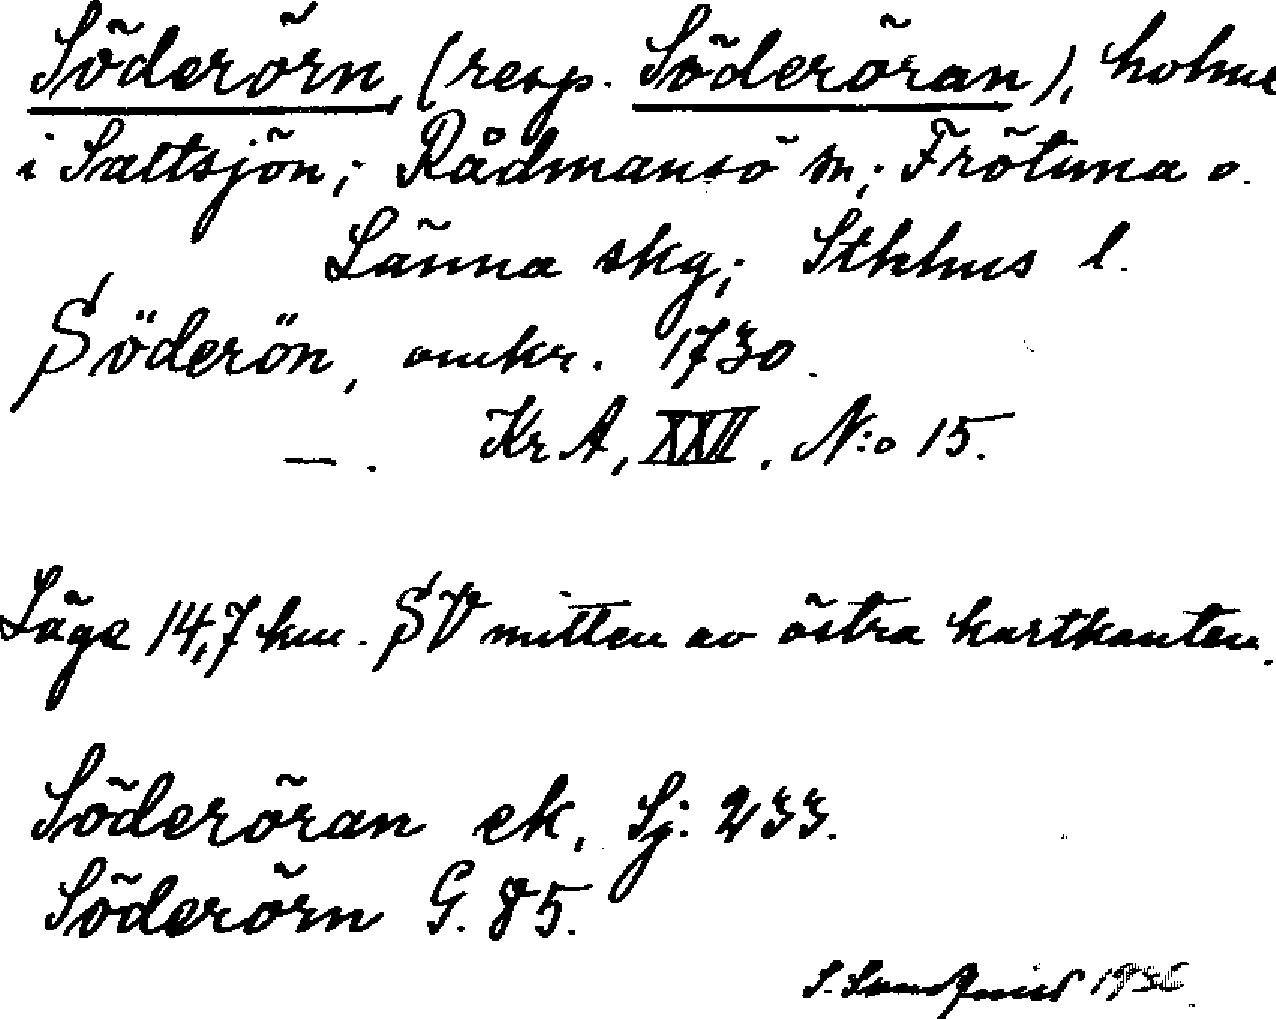 Söderörn, (resp. Söderöran), holme
i Saltsjön; Rådmansö sn; Frötuna o.
Länna skg; Sthlms l.
Söderön, omkr. 1730.
—. Kr A, XXII. N:o 15.
Läge 14,7 km. SV mitten av östra kartkanten.
Söderöran ek. Sj. 233.
Söderörn G. 85.
S.